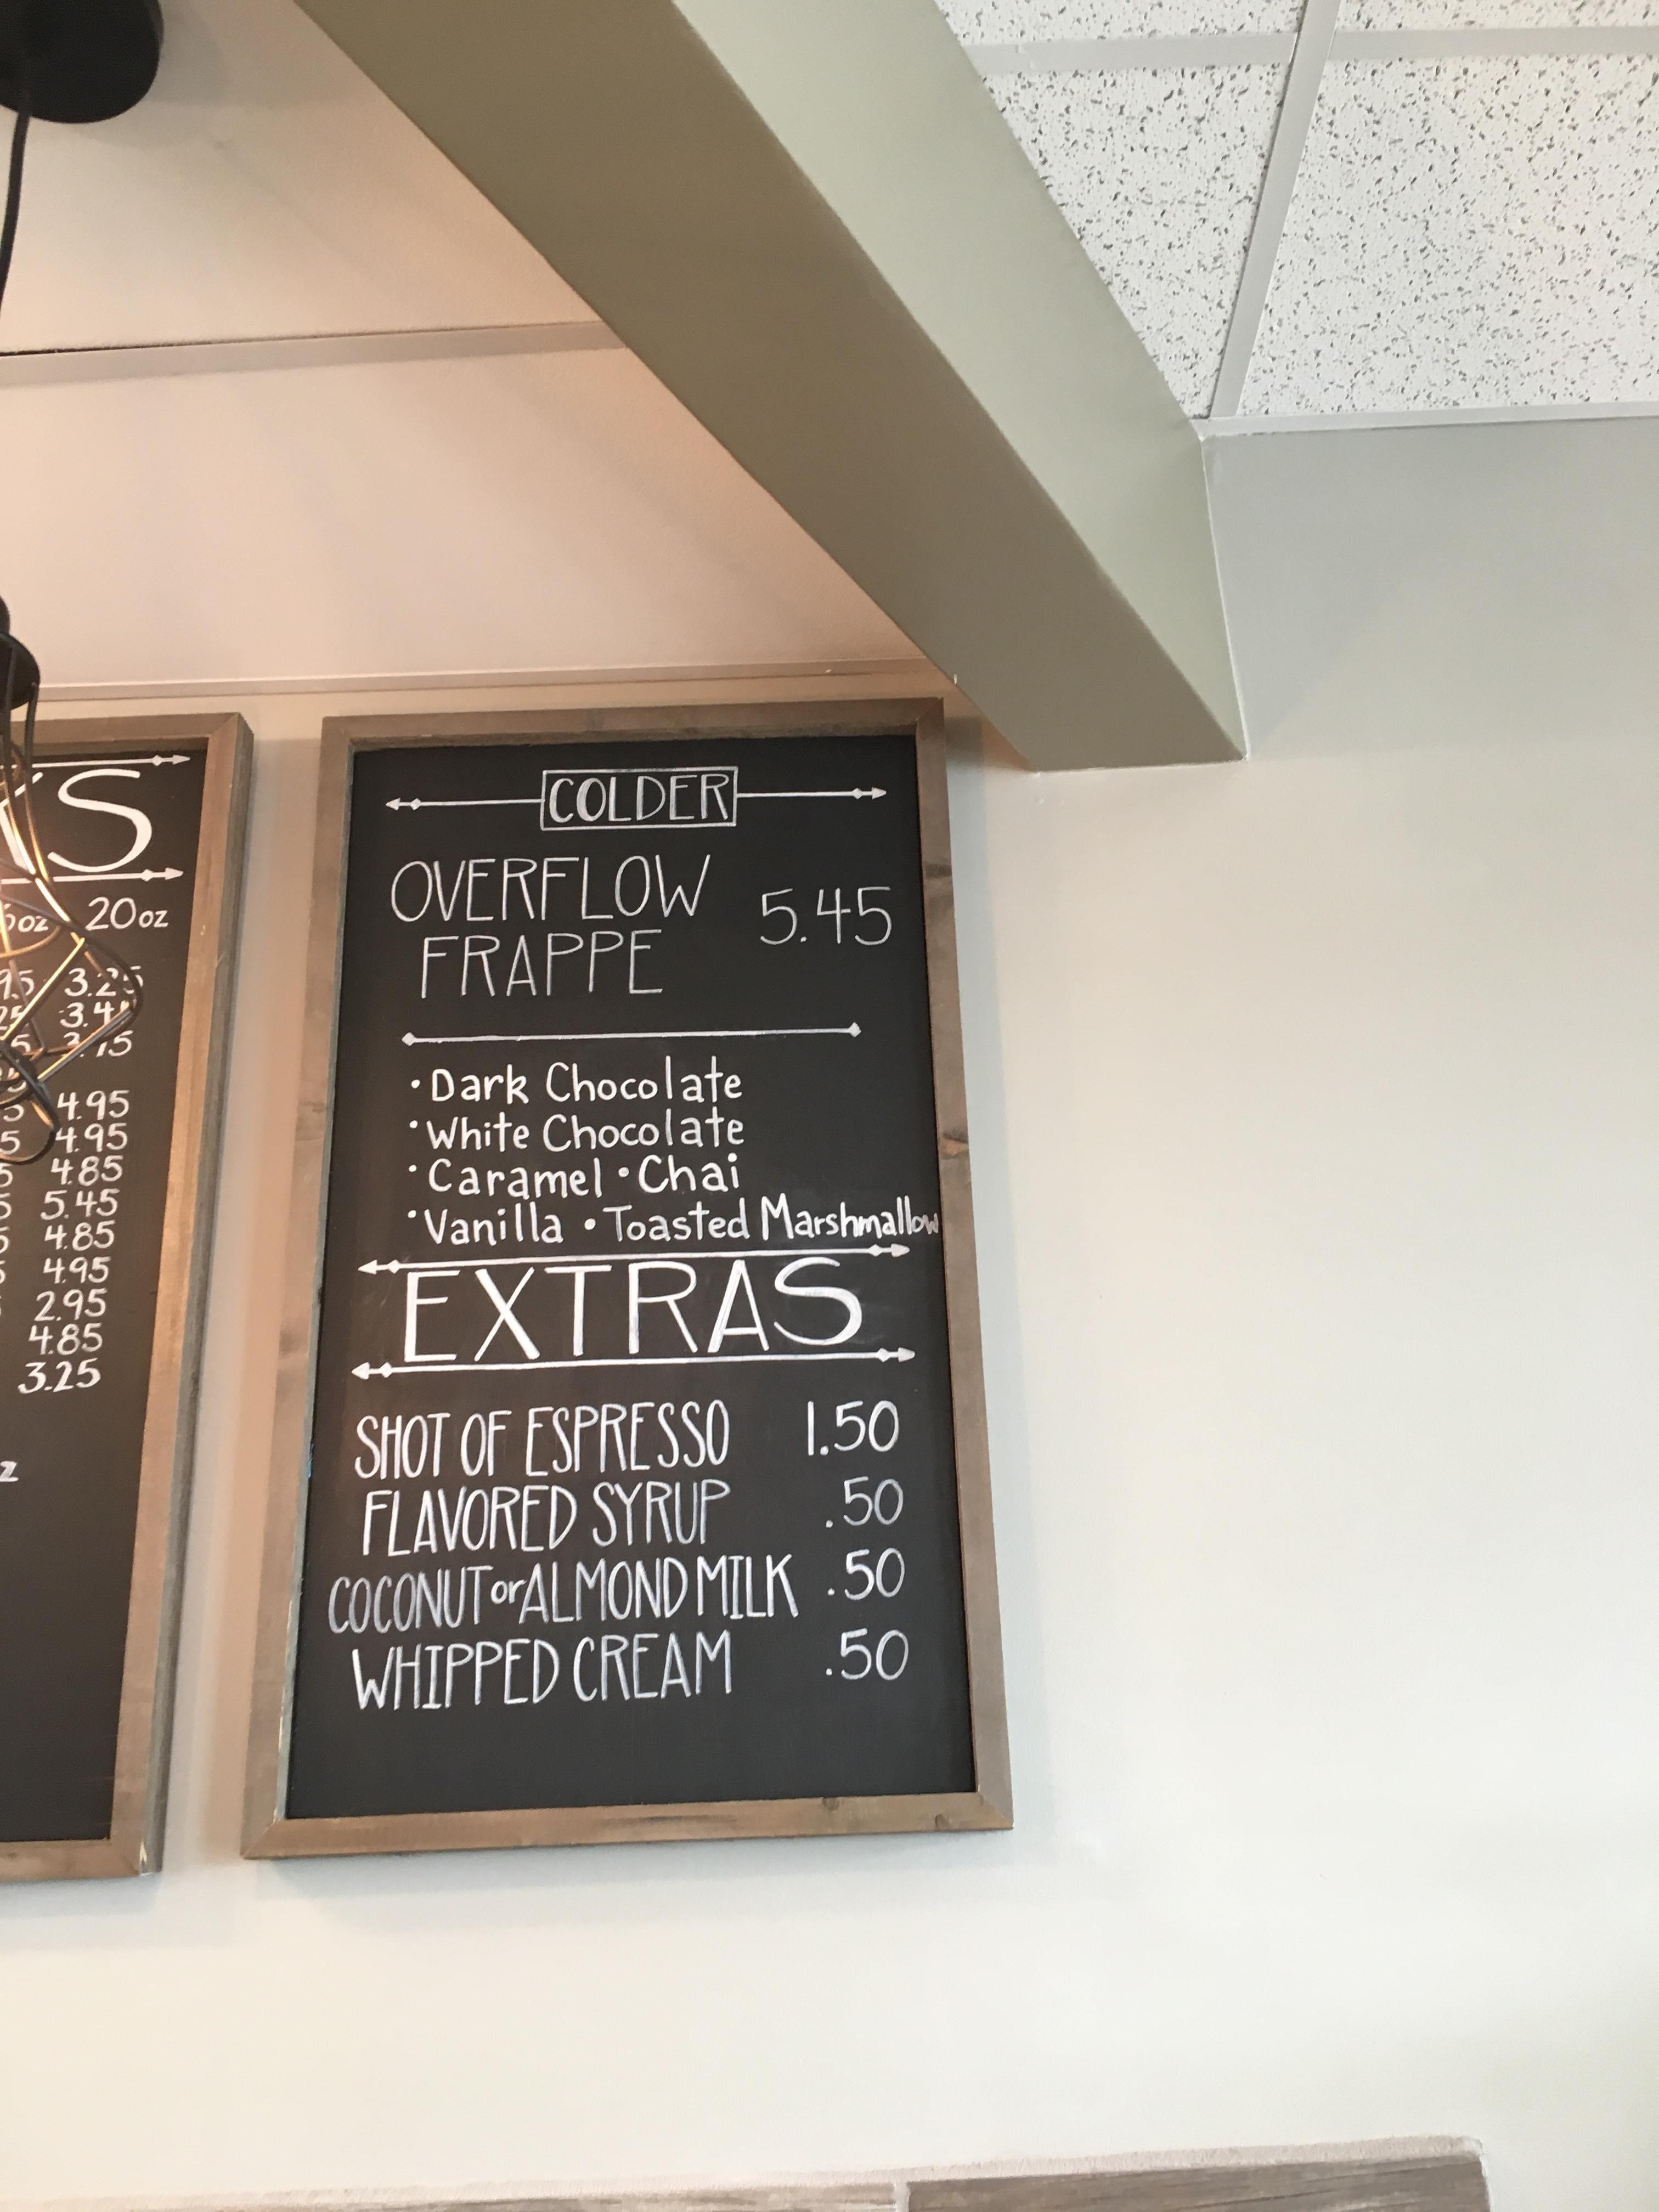 S
20oz
3.25
4.95
4.95
4.85
5.45
4.85
4.95
2.95
4.85
3.25
COLDER
OVERFLOW
FRAPPE
5.45
• Dark Chocolate
• White Chocolate
• Caramel • Chai
• Vanilla • Toasted Marshmallow
EXTRAS
SHOT OF ESPRESSO 1.50
FLAVORED SYRUP .50
COCONUT or ALMOND MILK .50
WHIPPED CREAM .50